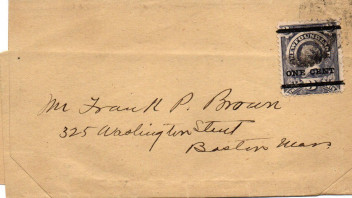 NEWFOUNDLAND
ONE CENT
Mr Frank P. Brown
325 Washington Street
Boston Mass